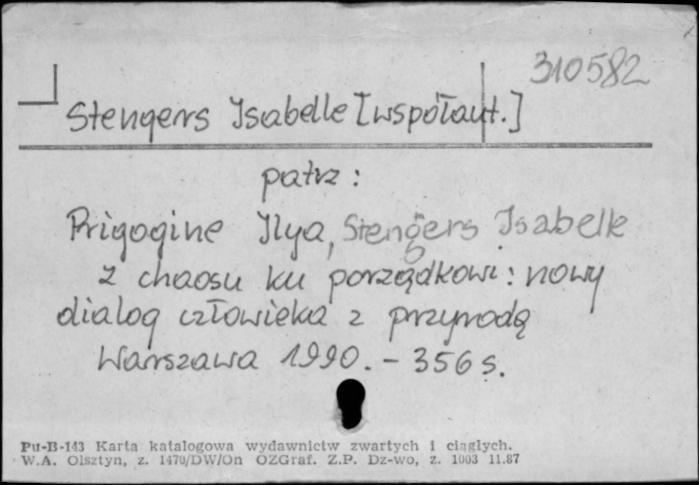 310582
Stengers Isabelle [współaut.]
patrz:
Prigogine Ilya, Stengers Isabelle
Z chaosu ku porządkowi: nowy
dialog człowieka z przyrodą
Warszawa 1990. - 356 s.
Pu-B-143 Karta katalogowa wydawnictw zwartych i ciągłych.
W.A. Olsztyn, z. 1470/DW/On OZGraf. Z.P. Dz-wo, z. 1003 11.87